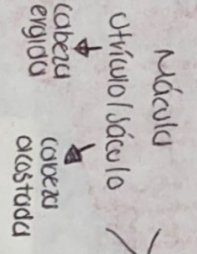 Mácula
Utrículo/Sáculo
cabeza erguida
cabeza acostada